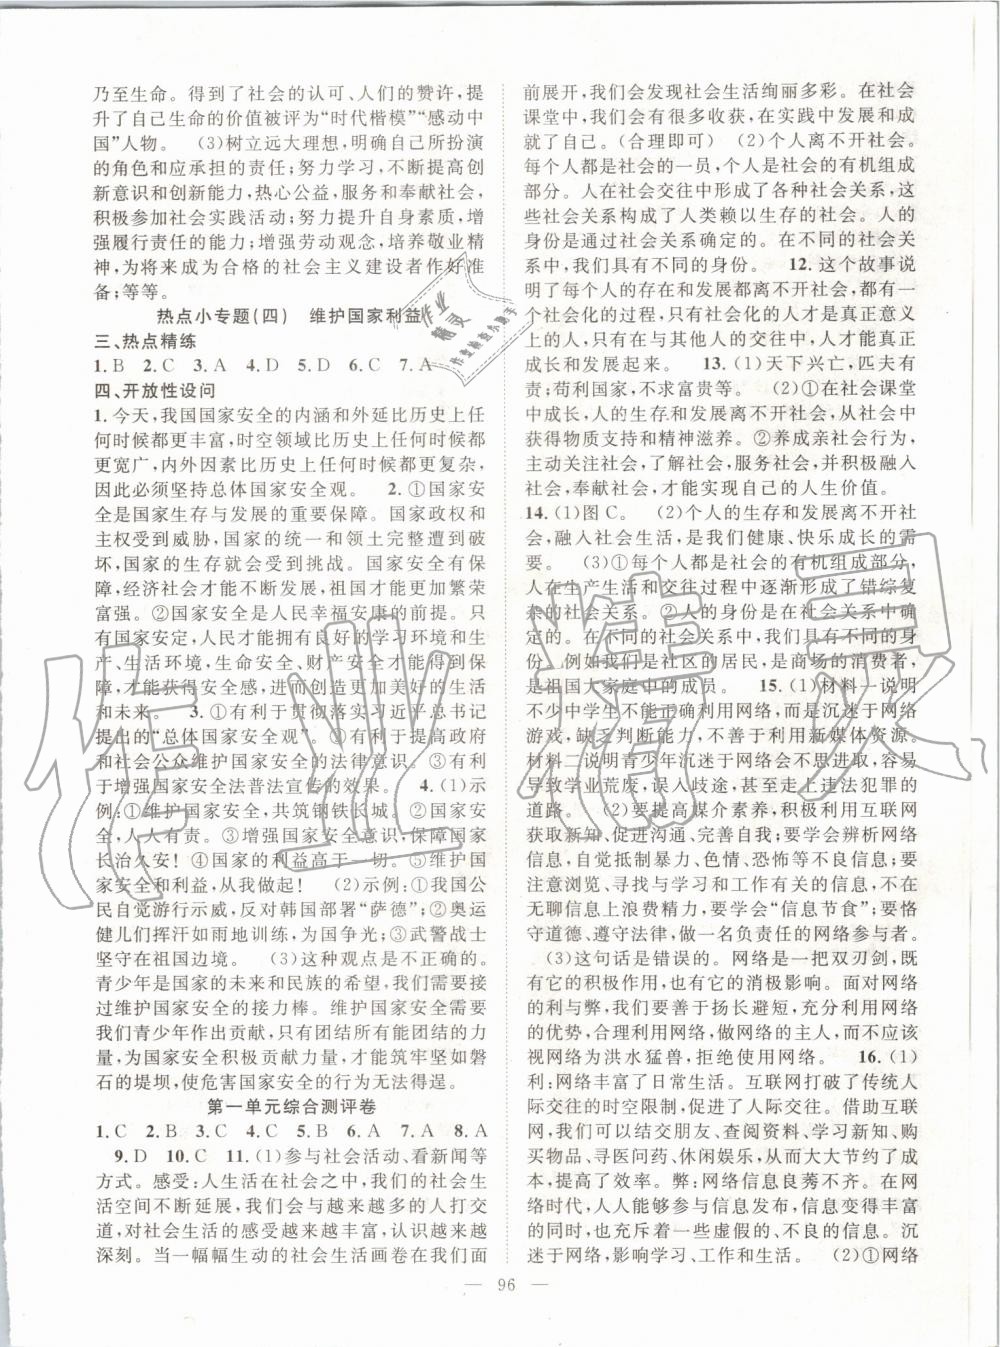 乃至生命。得到了社会的认可、人们的赞许,提
升了自己生命的价值被评为“时代楷模”“感动中
国”人物。　(3)树立远大理想,明确自己所扮演
的角色和应承担的责任;努力学习,不断提高创
新意识和创新能力,热心公益,服务和奉献社会,
积极参加社会实践活动;努力提升自身素质,增
强履行责任的能力;增强劳动观念,培养敬业精
神,为将来成为合格的社会主义建设者作好准
备;等等。
热点小专题(四)　维护国家利益
三、热点精练
1. B　2. C　3. A　4. D　5. D　6. C　7. A
四、开放性设问
1. 今天,我国国家安全的内涵和外延比历史上任
何时候都更丰富,时空领域比历史上任何时候都
更宽广,内外因素比历史上任何时候都更复杂,
因此必须坚持总体国家安全观。　2. ①国家安
全是国家生存与发展的重要保障。国家政权和
主权受到威胁,国家的统一和领土完整遭到破
坏,国家的生存就会受到挑战。国家安全有保
障,经济社会才能不断发展,祖国才能更加繁荣
富强。②国家安全是人民幸福安康的前提。只
有国家安定,人民才能拥有良好的学习环境和生
产、生活环境,生命安全、财产安全才能得到保
障,才能获得安全感,进而创造更加美好的生活
和未来。　3. ①有利于贯彻落实习近平总书记
提出的“总体国家安全观”。①有利于提高政府
和社会公众维护国家安全的法律意识。③有利
于增强国家安全法普法宣传的效果。　4. (1)示
例:①维护国家安全,共筑钢铁长城。②国家安
全,人人有责。③增强国家安全意识,保障国家
长治久安!　④国家的利益高于一切。⑤维护国
家安全和利益,从我做起!　(2)示例:①我国公
民自觉游行示威,反对韩国部署“萨德”;②奥运
健儿们挥汗如雨地训练,为国争光;③武警战士
坚守在祖国边境。　(3)这种观点是不正确的。
青少年是国家的未来和民族的希望,是新时代
接过维护国家安全的接力棒。维护国家安全需要
我们青少年作出贡献,只有团结所有能团结的力
量,为国家安全积极贡献力量,才能筑牢坚如磐
石的堤坝,使危害国家安全的行为无法得逞。
第一单元综合测评卷
1. C　2. B　3. C　4. C　5. B　6. A　7. A　8. A
9. D　10. C　11. (1)参与社会活动、看新闻等
方式。感受:人生活在社会之中,我们的社会生
活空间不断延展,我们会与越来越多的人打交
道,对社会生活的感受越来越丰富,认识越来越
深刻。当一幅幅生动的社会生活画卷在我们面
前展开,我们会发现社会生活绚丽多彩。在社会
课堂中,我们会有很多收获,在实践中发展和成
就了自己。(合理即可)　(2)个人离不开社会。
每个人都是社会的一员,个人是社会的有机组成
部分。人在社会交往中形成了各种社会关系,这
些社会关系构成了人类赖以生存的社会。人的
身份是通过社会关系确定的。在不同的社会关
系中,我们具有不同的身份。　12. 这个故事说
明了每个人的生存和发展都离不开社会,任何一
个社会化的过程,只有社会化的人才是真正意义
上的人,只有在与其他人的交往中,人才能真正
成长和发展起来。　13. (1)天下兴亡,匹夫有
责;苟利国家,不求富贵等。　(2)①在社会课堂
中成长,人的生存和发展离不开社会,从社会中
获得物质支持和精神滋养。②养成亲社会行为,
主动关注社会,了解社会,服务社会,并积极融入
社会,奉献社会,才能实现自己的人生价值。
14. (1)图 C。　(2)个人的生存和发展离不开社
会,融入社会生活,是我们健康、快乐成长的需
要。　(3)①每个人都是社会的有机组成部分,
人在生产生活和交往过程中逐渐形成了错综复
杂的社会关系。②人的身份是在社会关系中确
定的。在不同的社会关系中,我们具有不同的身
份。例如我们是社区的居民,是商场的消费者,
是祖国大家庭中的成员。　15. (1)材料一说明
不少中学生不能正确利用网络,而是沉迷于网络
游戏,缺乏判断能力,不善于利用新媒体资源。
材料二说明青少年沉迷于网络会不思进取,容易
导致学业荒废,误入歧途,甚至走上违法犯罪的
道路。　(2)要提高媒介素养,积极利用互联网
获取新知、促进沟通、完善自我;要学会辨析网络
信息,自觉抵制暴力、色情、恐怖等不良信息;要
注意浏览、寻找与学习和工作有关的信息,不在
无聊信息上浪费精力,要学会“信息节食”;要恪
守道德、遵守法律,做一名负责任的网络参与者。
(3)这句话是错误的。网络是一把双刃剑,既
有它的积极作用,也有它的消极影响。面对网络
的利与弊,我们要善于扬长避短,充分利用网络
的优势,合理利用网络,做网络的主人,而不应该
视网络为洪水猛兽,拒绝使用网络。　16. (1)
利:网络丰富了日常生活。互联网打破了传统人
际交往的时空限制,促进了人际交往。借助互联
网,我们可以结交朋友、查阅资料、学习新知、购
买物品、寻医问药、休闲娱乐,从而大大节约了成
本,提高了效率。弊:网络信息良莠不齐。在网
络时代,人人能够参与信息发布,信息变得丰富
的同时,也充斥着一些虚假的、不良的信息。沉
迷于网络,影响学习、工作和生活。　(2)①网络
— 96 —
作业精灵
作业
精灵
作业检查小助手